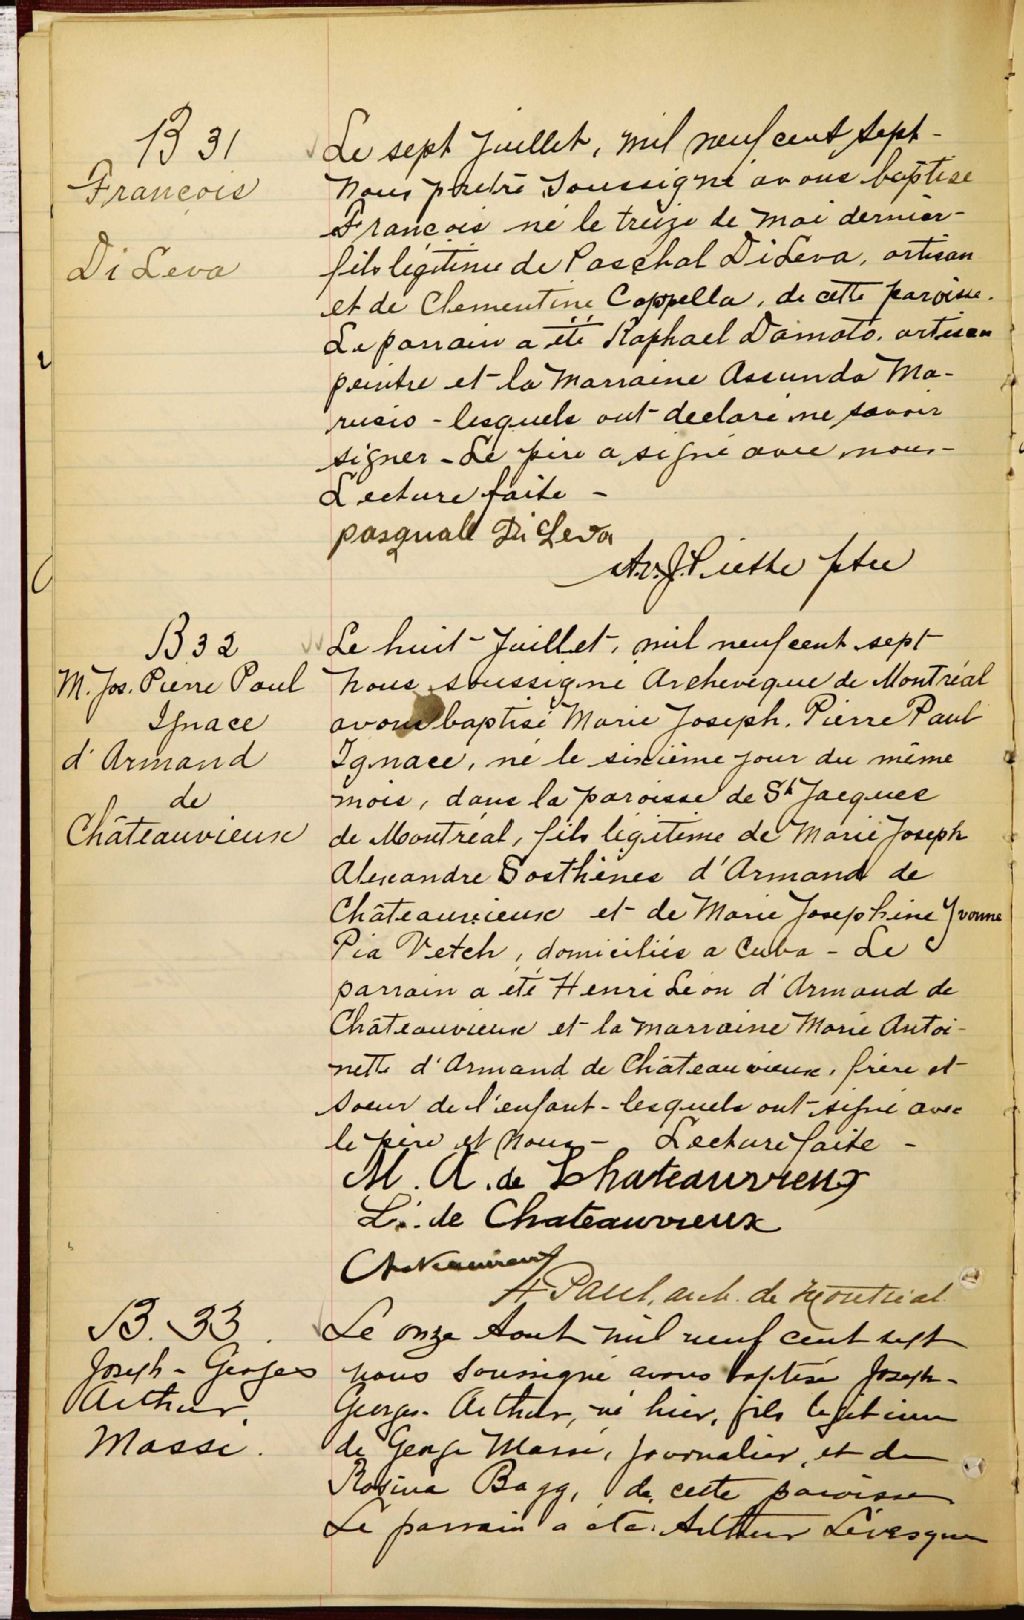 B 31
François
Di Leva
Le sept Juillet, mil neuf cent sept -
Nous prêtre soussigné avons baptisé
François né le treize de mai dernier -
fils légitime de Paschal DiLeva, artisan
et de Clementine Cappella, de cette paroisse.
Le parrain a été Raphael Damato, artisan
peintre et la Marraine Assunda Ma-
rucio - lesquels ont declaré ne savoir
signer - Le père a signé avec nous -
Lecture faite -
pasquale Di Leva
ptre
B 32
M. Jos. Pierre Paul
Ignace
d'Armand
de
Châteauvieux
Le huit Juillet, mil neuf cent sept
Nous soussigné Archevêque de Montréal
avons baptisé Marie Joseph. Pierre Paul
Ignace, né le sixième jour du même
mois, dans la paroisse de St Jacques
de Montréal, fils légitime de Marie Joseph
Alexandre Sosthènes d'Armand de
Châteauvieux et de Marie Josephine Yvonne
Pia Vetch, domiciliés a Cuba - Le
parrain a été Henri Léon d'Armand de
Châteauvieux et la marraine Marie Antoi-
nette d'Armand de Châteauvieux, frère et
soeur de l'enfant - lesquels ont signé avec
le père et nous - Lecture faite -
M. A. de Chateauvieux
L. de Chateauvieux
Chateauvieux
+ Paul, arch. de Montréal
B. 33.
Joseph - Georges
Arthur,
Massé.
Le onze Aout mil neuf cent sept
nous soussigné avons baptisé Joseph-
Georges- Arthur, né hier, fils légitime
de George Massé, journalier, et de
Rosina Bagg, de cette paroisse
Le parrain a été Arthur Lévesque